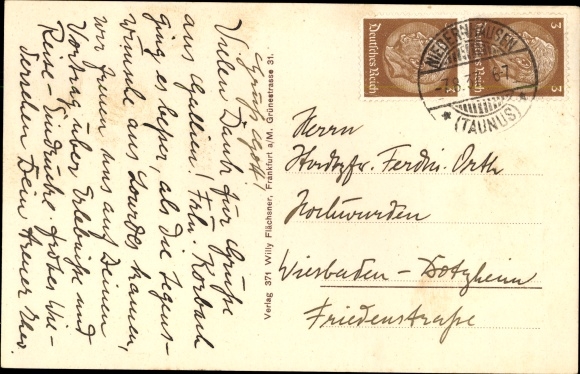 Grüß Gott!
Vielen Dank für Grüße
aus Gallien! Frln. Korbach
ging es besser, als die Segens-
wünsche aus Lourdes kamen,
wir freuen uns auf Deinen
Vortrag über Erlebnisse und
Reise-Eindrücke. Frohes Wie-
dersehen Dein treuer Theo.
Verlag 371 Willy Flächsner, Frankfurt a/M. Grünestrasse 31.
Deutsches Reich 3
Deutsches Reich 3
NIEDERNHAUSEN
(TAUNUS)
Herrn
Stadtpfr. Ferdin. Orth
Hochwürden
Wiesbaden-Dotzheim
Friedenstraße